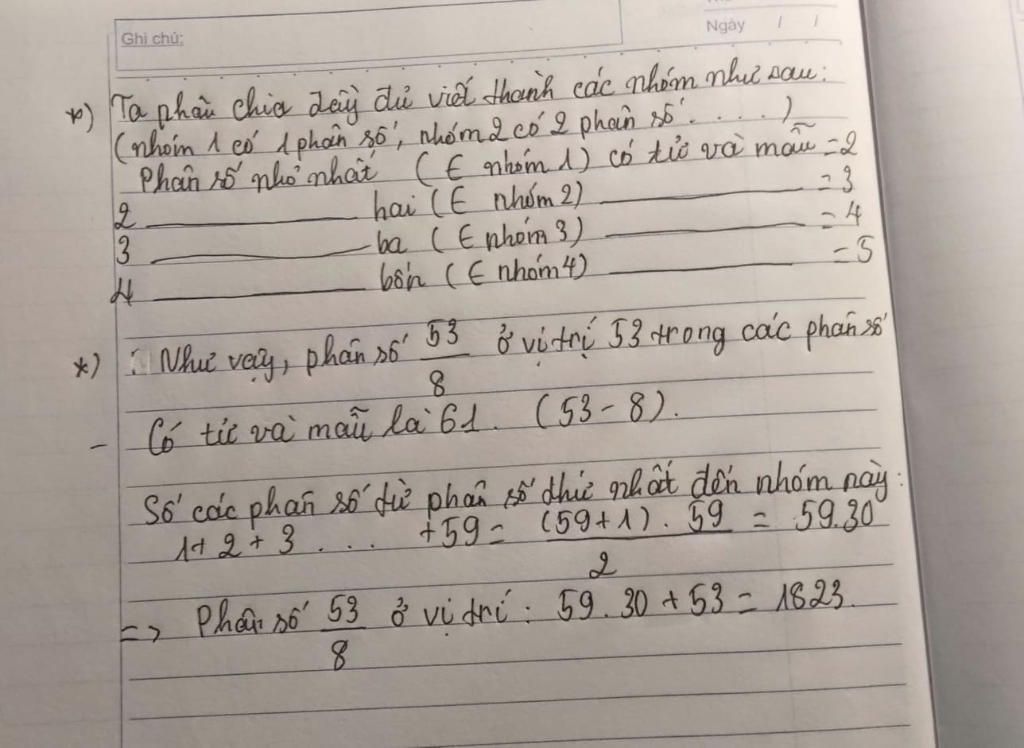 Ghi chú:
Ngày / /
*) Ta phân chia dãy đã viết thành các nhóm như sau:
(nhóm 1 có 1 phân số, nhóm 2 có 2 phân số . . . . )
Phân số nhỏ nhất (∈ nhóm 1) có tử và mẫu = 2
2 ______ hai (∈ nhóm 2) ______ = 3
3 ______ ba (∈ nhóm 3) ______ = 4
4 ______ bốn (∈ nhóm 4) ______ = 5
*) : Như vậy, phân số 53/8 ở vị trí 53 trong các phân số
- Có tử và mẫu là 61. (53 - 8).
Số các phân số từ phân số thứ nhất đến nhóm này:
1 + 2 + 3 . . . + 59 = (59+1) . 59 / 2 = 59.30
=> Phân số 53/8 ở vị trí: 59.30 + 53 = 1823.